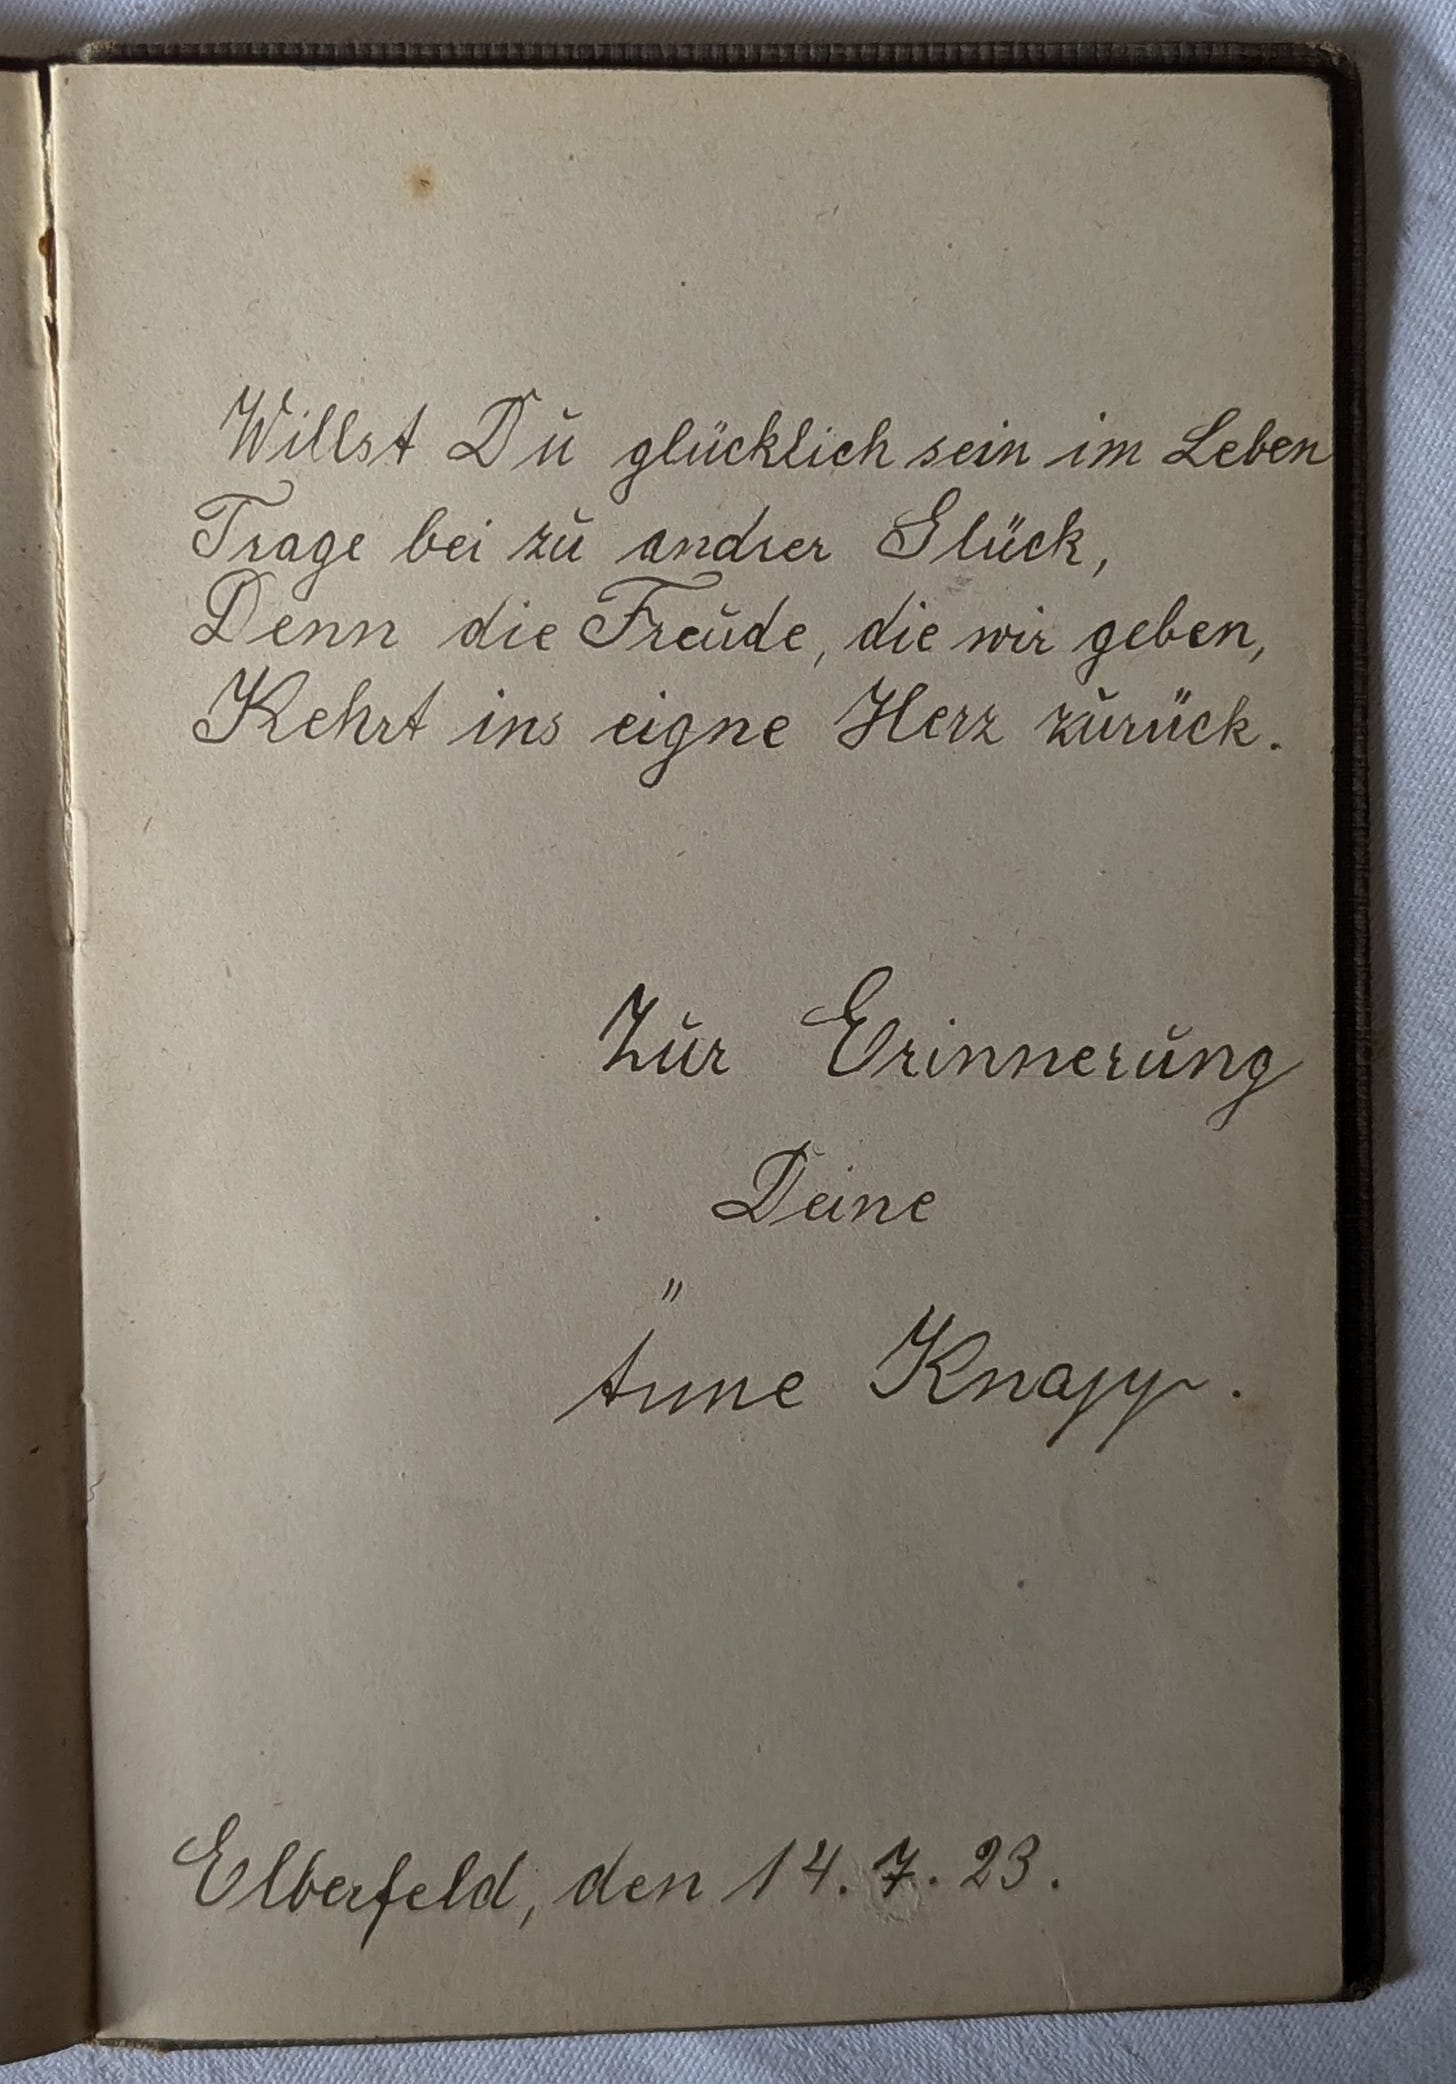 Willst Du glücklich sein im Leben
Trage bei zu andrer Glück,
Denn die Freude, die wir geben,
Kehrt ins eigne Herz zurück.
Zur Erinnerung
Deine
Änne Knapp.
Elberfeld, den 14. 7. 23.